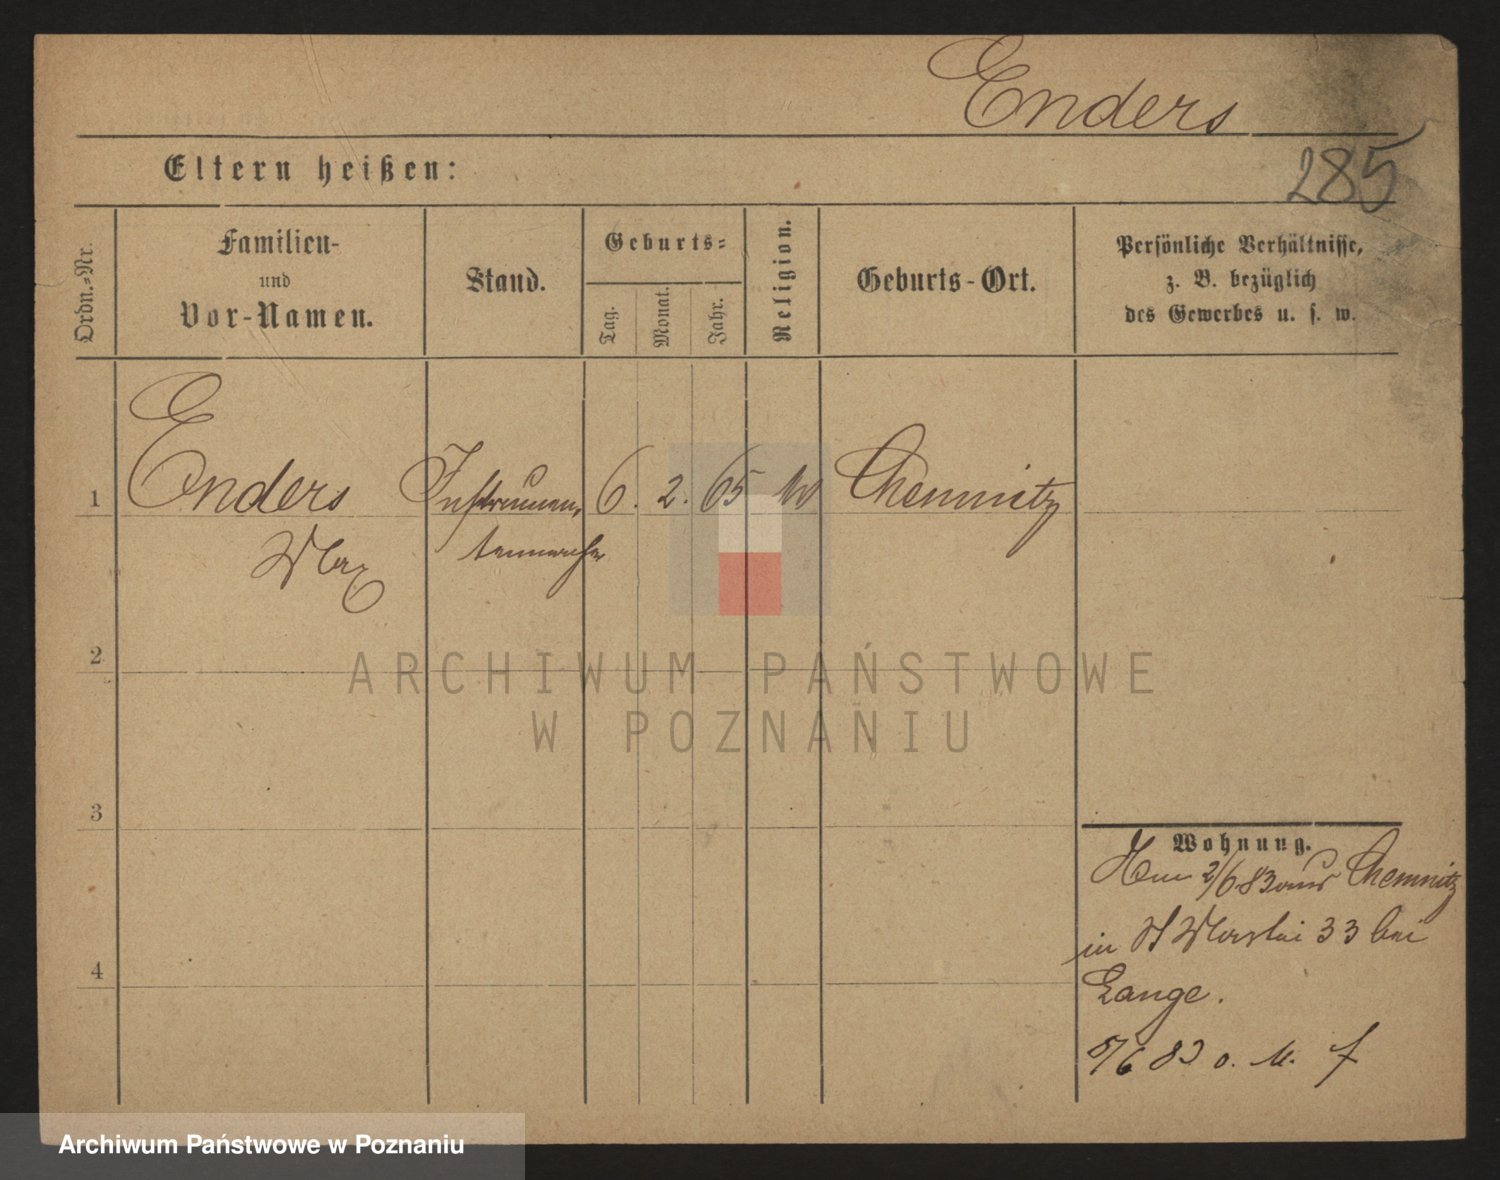 Enders
285
Eltern heißen:
Ordn.-Nr.
Familien-
und
Vor-Namen.
Stand.
Geburts-
Tag.
Monat.
Jahr.
Religion.
Geburts-Ort.
Persönliche Verhältnisse,
z. B. bezüglich
des Gewerbes u. s. w.
1
Enders
Max
Instrumen-
tenmacher
6. 2. 65
Chemnitz
2
3
4
Wohnung.
2/6 83 aus Chemnitz
in St Martin 33 bei
Lange.
5/6 83 o. M.
ARCHIWUM PAŃSTWOWE
W POZNANIU
Archiwum Państwowe w Poznaniu